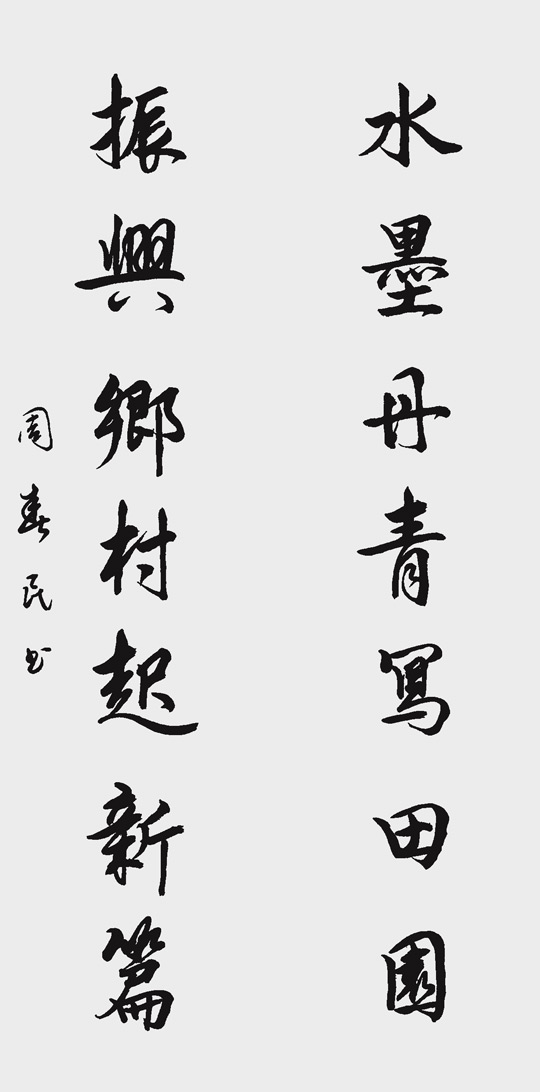 水墨丹青寫田園
振興鄉村起新篇
周春民书